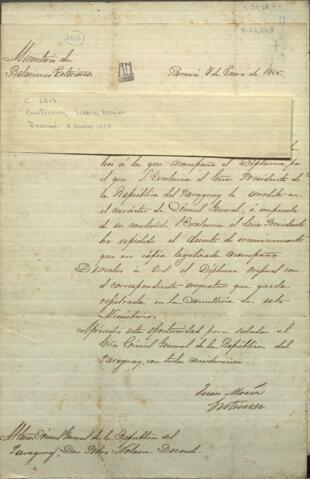 Ministerio de
Relaciones Exteriores
Paraná 8 Enero de 1855.
Paraná 8 enero 1855
bre á la que acompaña el Diploma por
el que S. Excelencia el Señor Presidente de
la República del Paraguay le acredita en
el carácter de Cónsul General, é impuesto
de su contenido, S. Excelencia el Señor Presidente
ha expedido el decreto de reconocimiento
que en cópia legalizada acompaño.
Devuelvo á V.S. el Diploma original con
el correspondiente que queda
registrado en la Cancillería de este
Ministerio.
Aprovecho esta oportunidad para saludar al
Señor Cónsul General de la República del
Paraguay, con toda consideracion.
Juan María
Gutierrez
Al Señor Cónsul General de la República del
Paraguay, Don